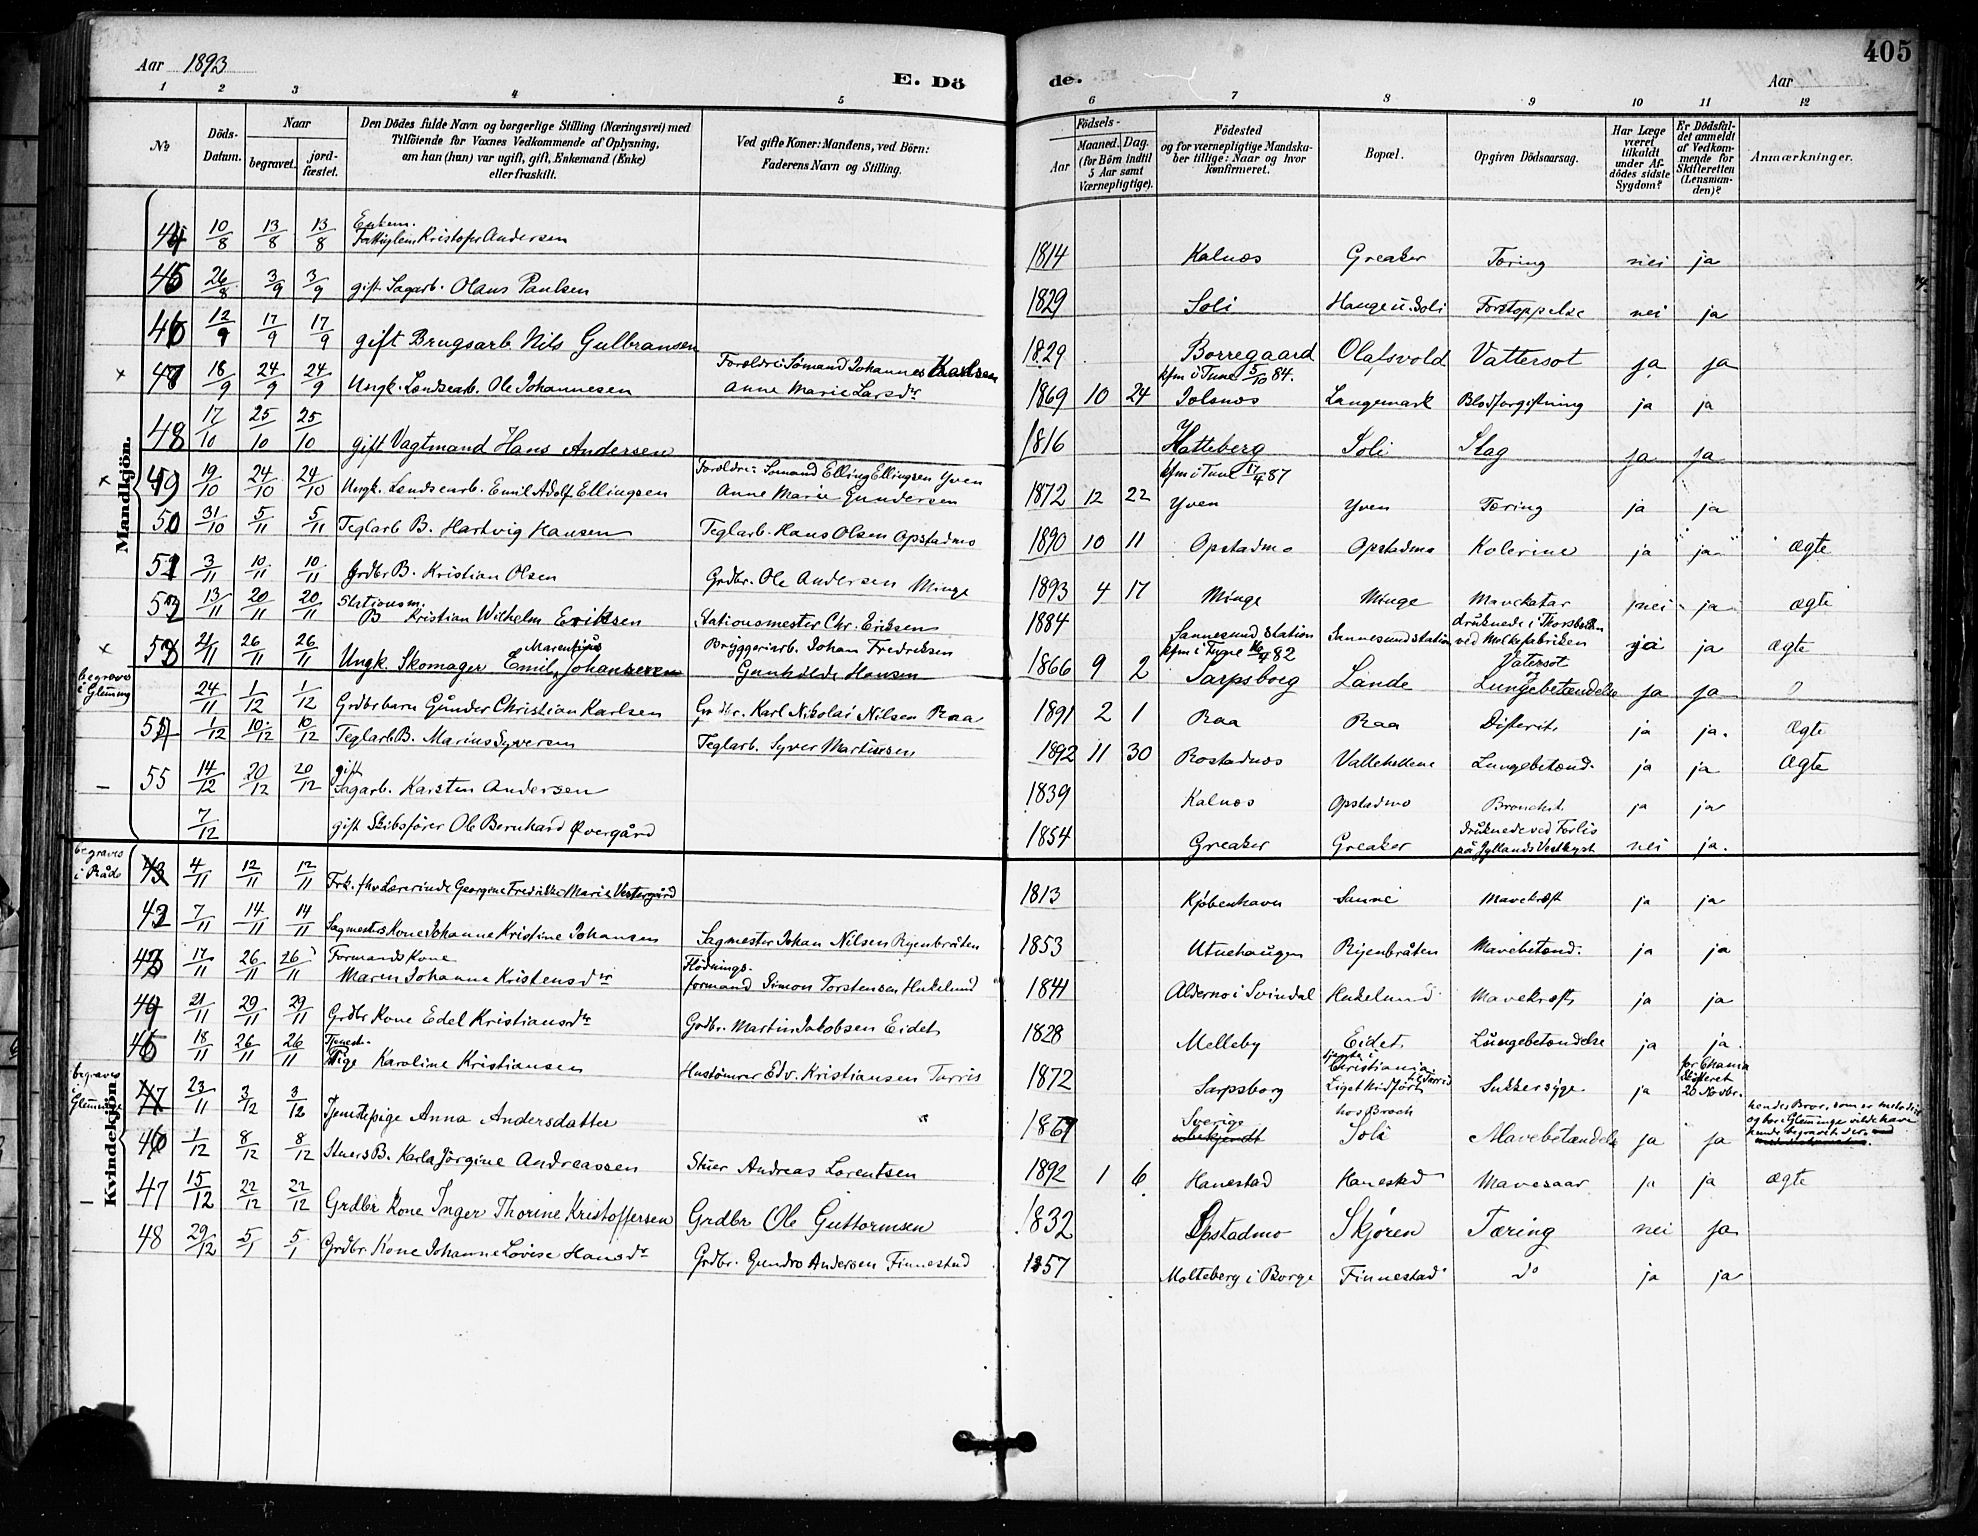 Aar 1893
E. Dö
de.
Aar
405
1 2 3 4 5 6 7 8 9 10 11 12
No
Döds-Datum.
Naar
begravet.
jord-fæstet.
Den Dödes fulde Navn og borgerlige Stilling (Næringsvei) med
Tilföiende for Voxnes Vedkommende af Oplysning,
om han (hun) var ugift, gift, Enkemand (Enke)
eller fraskilt.
Ved gifte Koner: Mandens, ved Börn:
Faderens Navn og Stilling.
Födsels-
Aar
Maaned. Dag.
(for Börn indtil
5 Aar samt
Værnepligtige).
Födested
og for værnepligtige Mandska-
ber tillige: Naar og hvor
konfirmeret.
Bopæl.
Opgiven Dödsaarsag.
Har Læge
været
tilkaldt
under Af-
dödes sidste
Sygdom?
Er Dödsfal-
det anmeldt
af Vedkom-
mende for
Skifteretten
(Lensman-
den)?
Anmærkninger.
Mandkjön.
44 10/8 13/8 13/8 Enkem. Fattiglem Kristofer Andersen 1814 Kalnæs Greaker Tæring nei ja
45 26/8 3/9 3/9 gift Sagarb. Olaus Paulsen 1829 Soli Hauge u. Soli Forstoppelse nei ja
46 12/9 17/9 17/9 gift Brugsarb. Nils Gulbransen 1829 Borregaard Olafsvold Vattersot ja ja
× 47 18/9 24/9 24/9 Ungk. Landsearb. Ole Johannesen Forældre: Sømand Johannes Karlsen Anne Marie Larsdr 1869 10 24 kfm i Tune 5/10 84. Jelsnæs Langemark Blodforgiftning ja ja
48 17/10 25/10 25/10 gift Vagtmand Hans Andersen 1816 Hatteberg Soli Slag ja ja
× 49 19/10 24/10 24/10 Ungk. Landsearb. Emil Adolf Ellingsen Forældre: Sømand Elling Ellingsen Yven Anne Marie Gundersen 1872 12 22 kfm i Tune 17/4 87 Yven Yven Tæring ja ja
50 31/10 5/11 5/11 Teglarb B. Hartvig Hansen Teglarb. Hans Olsen Opstadmo 1890 10 11 Opstadmo Opstadmo Kolerine ja ja ægte
51 3/11 10/11 10/11 Grdbr B. Kristian Olsen Grdbr. Ole Andersen Minge 1893 4 17 Minge Minge Mavekatar nei ja ægte
52 13/11 20/11 20/11 Stationsm. B Kristian Wilhelm Eriksen Stationsmester Chr. Eriksen 1884 Sannesund Station Sannesund Station druknede i Thorsbækken ved Molkefabriken ja ja ægte
× 53 21/11 26/11 26/11 Ungk. Skomager Emil Marentius Johansen Bryggeriarb. Johan Fredriksen Gunhilde Hansen 1866 9 2 kfm i Tune 16/4 82 Sarpsborg Lande Vatersot og Lungebetændelse ja ja
begraves i Glemmg 24/11 1/12 1/12 Grdbrbarn Gunder Christian Karlsen Grdbr. Karl Nikolai Nilsen Raa 1891 2 1 Raa Raa Difterit. ja ja. Ægte
54 1/12 10/12 10/12 Teglarb B. Marius Syversen Teglarb. Syver Martinsen 1892 11 30 Rostadnæs Vallehellene Lungebetænd. ja ja Ægte
– 55 14/12 20/12 20/12 gift Sagarb. Karsten Andersen 1839 Kalnæs Opstadmo Bronchit. ja ja
7/12 gift Skibsfører Ole Bernhard Øvergård 1854 Greaker Greaker druknede ved Forlis på Jyllands Vestkyst nei ja.
Kvindekjön.
begraves i Råde 43 4/11 12/11 12/11 Frk. fhv Lærerinde Georgine Fredrikke Marie Vestergård 1813 Kjøbenhavn Sanne Mavekræft ja ja
42 7/11 14/11 14/11 Sagmesters Kone Johanne Kristine Johansen Sagmester Johan Nilsen Ryenbråten 1853 Utnehaugen Ryenbråten Mavebetænd. ja ja
43 17/11 26/11 26/11 Formands Kone Maren Johanne Kristensdr Flødnings-formand Simon Torstensen Hukelund 1841 Aldernæs i Svindal Hukelund Mavekræft ja ja
44 21/11 29/11 29/11 Grdbr Kone Edel Kristiansdr Grdbr. Martin Jakobsen Eidet 1828 Melleby Eidet Lungebetændelse ja ja.
45 18/11 26/11 26/11 Tjeneste-Pige Karoline Kristiansen Hustømrer Edv. Kristiansen Tarris 1872 Sarpsborg tjente i Christiania Liget hidført til Tarris Sukkersyge ja for Chania Skifteret 20 Novbr.
begraves i Glemminge 47 23/11 3/12 3/12 Tjenstepige Anna Andersdatter " 1867 Sverige ubekjendt hos Broch Soli Mavebetændelse ja ja hendes Bror, som er metodist og bor i Glemminge vilde have hende begravet der.
46 1/12 8/12 8/12 Stuers B. Karla Jörgine Andreassen Stuer Andreas Lorentsen 1892 1 6 Hanestad Hanestad Mavesaar ja ja ægte
– 47 15/12 22/12 22/12 Grdbr Kone Inger Thorine Kristoffersen Grdbr Ole Guttormsen 1832 Opstadmo Skjøren Tæring nei ja
48 29/12 5/1 5/1 Grdbr. Kone Johanne Lovise Hansdr Grdbr. Gundro Andersen Finnestad 1857 Molteberg i Borge Finnestad do ja ja